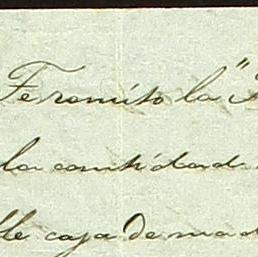 Te remito la "
la cantidad
caja de mad